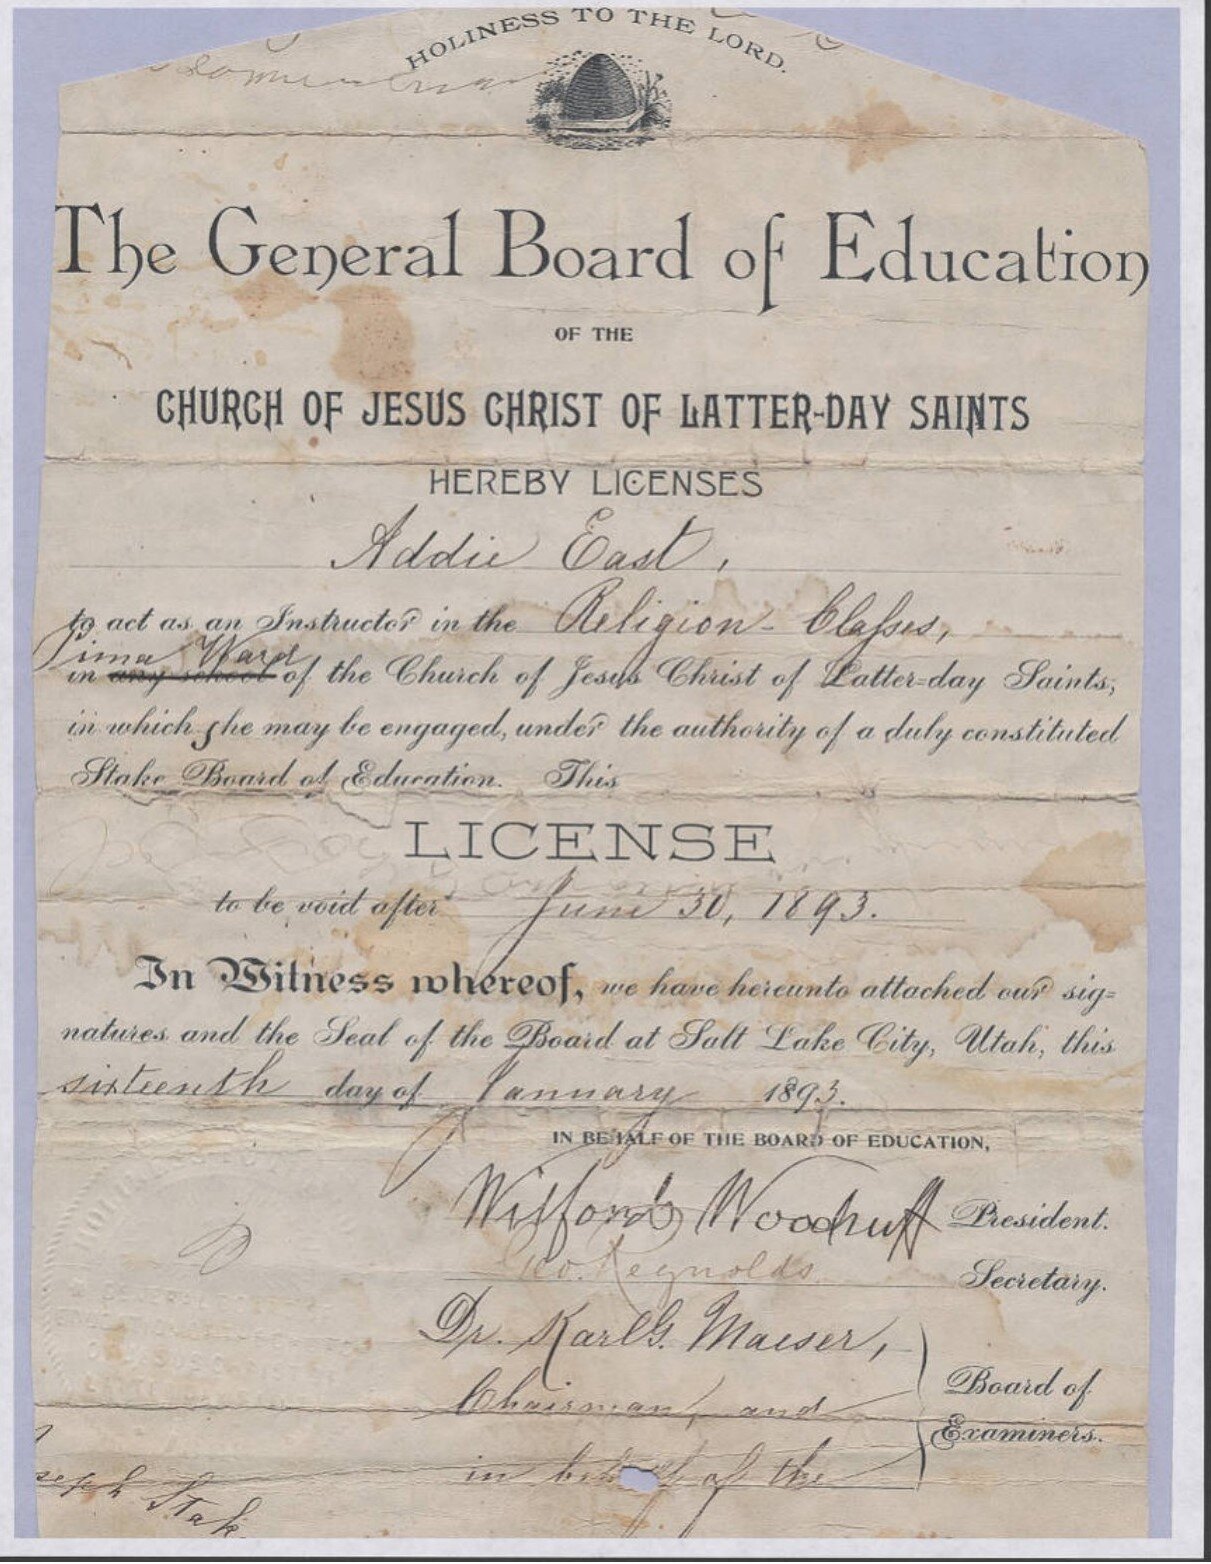 HOLINESS TO THE LORD.
The General Board of Education
OF THE
CHURCH OF JESUS CHRIST OF LATTER-DAY SAINTS
HEREBY LICENSES
Addie East,
to act as an Instructor in the Religion - Classes,
Pima Ward
in any school of the Church of Jesus Christ of Latter-day Saints,
in which she may be engaged, under the authority of a duly constituted
Stake Board of Education. This
LICENSE
to be void after June 30, 1893.
In Witness whereof, we have hereunto attached our sig-
natures and the Seal of the Board at Salt Lake City, Utah, this
sixteenth day of January 1893.
IN BEHALF OF THE BOARD OF EDUCATION,
Wilford Woodruff President.
Geo. Reynolds Secretary.
Dr. Karl G. Maeser,
Chairman, and
Board of
Examiners.
in behalf of the
seph Stak